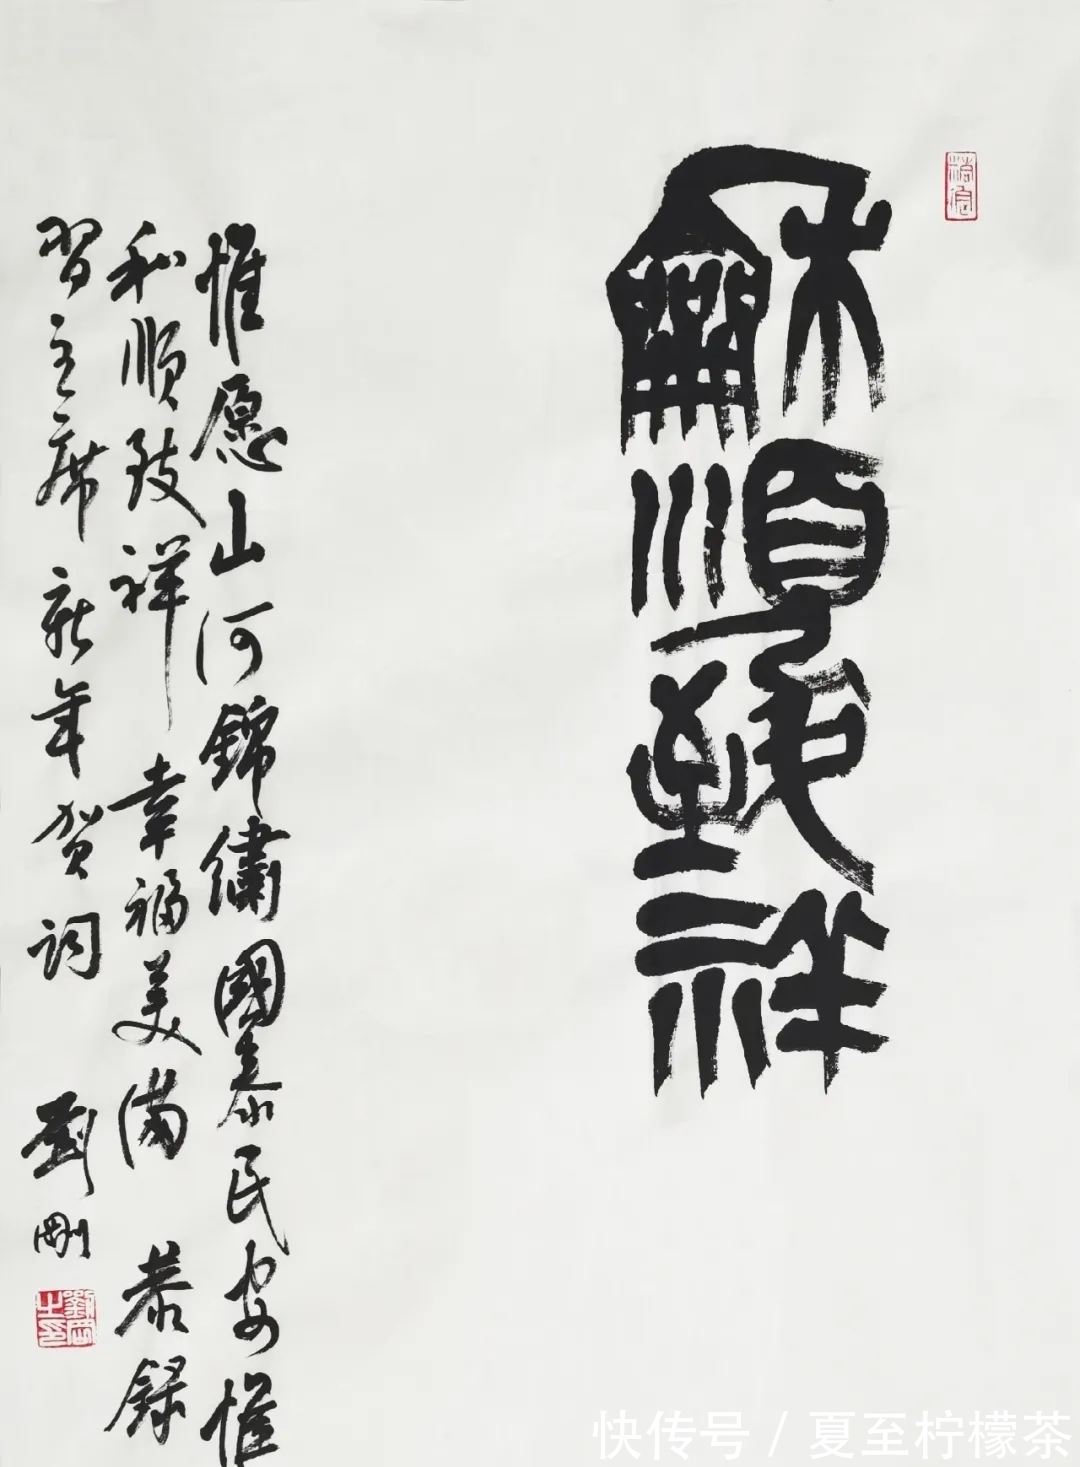 龢順致祥
惟愿山河錦繡國泰民安惟
和順致祥幸福美满 恭錄
習主席新年贺词 劉剛
劉剛之印
快传号 / 夏至柠檬茶